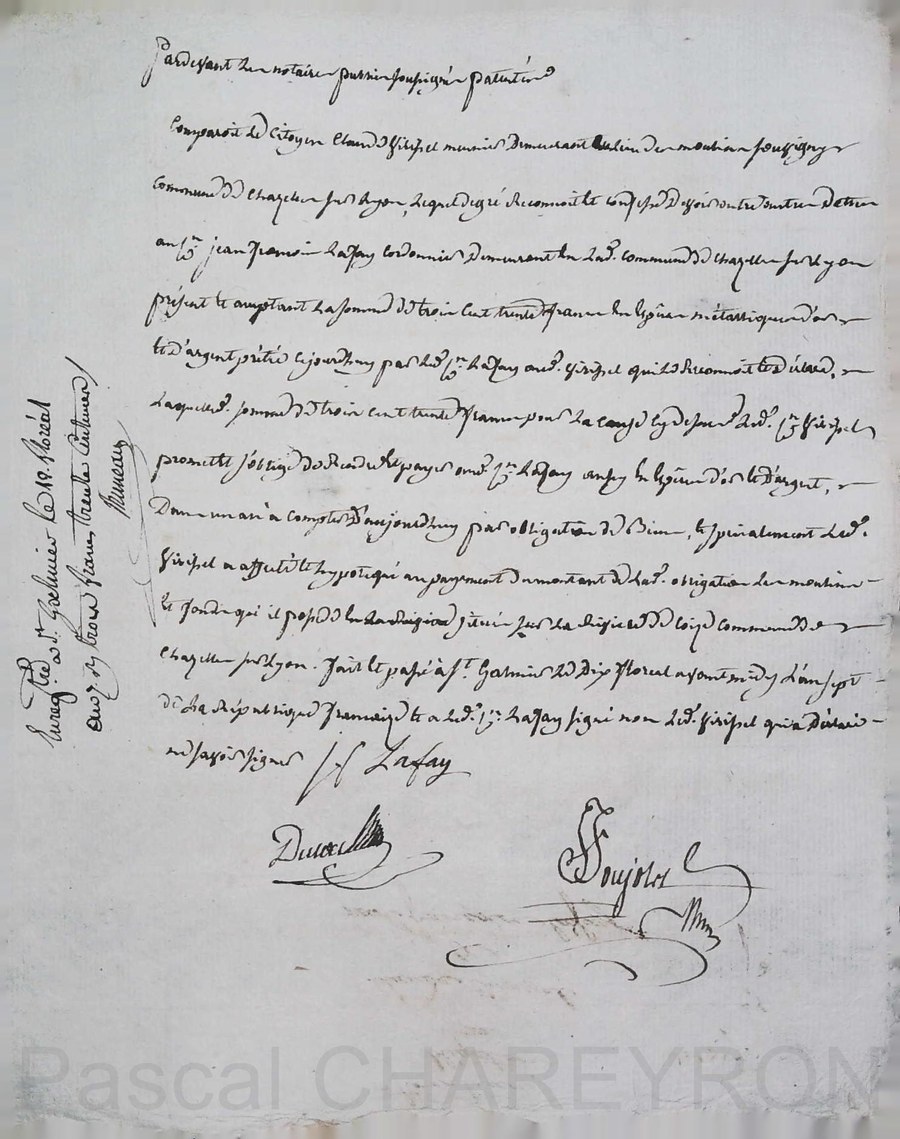 Pardevant Les notaires publics soussignés patentés
Comparoit Le Citoyen Claude Virisel meunier Demeurant au lieu des moulins
Commune de Chazelles sur Lyon, Lequel de gré Reconnoit et Confesse Devoir
au Cn. jean françois Lafay Cordonnier Demeurant en Lad. Commune de Chazelles sur Lyon
présent et acceptant La somme de trois Cent trente francs En Espèces métalliques d'or
et D'argent prêtée ce jourdhuy par Led. Cn. Lafay aud. Virisel qui Le Reconnoit et Déclare,
Laquelle d. somme de trois cent trente francs pour La cause cy dessus Led. Cn. Virisel
promet et s'oblige de Rendre et payer aud. Cn. Lafay En Espèces d'or et D'argent,
Dans un an à Compter D'aujourdhuy par obligation de Biens, et spécialement Led.
Virisel a affecté et hypotéqué au payement Du montant de Lad. obligation Les moulins
et fonds qui il possède situés sur La Rivière de Coize Commune de
Chazelles sur Lyon. fait et passé à St. Galmier Le Dix floréal avant midy L'an sept
de La République française et a Led. Cn. Lafay signé non Led. Virisel qui a Déclaré
ne savoir signer J f Lafay
Soujolos
Enreg.tré à St. Galmier Le 18. floréal
an 7 trois francs trente centimes
Pascal CHAREYRON